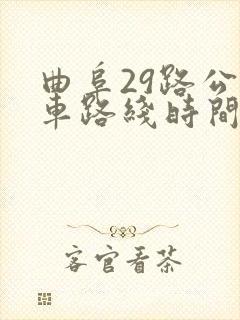 曲阜29路公
車路綫時間
客官看茶